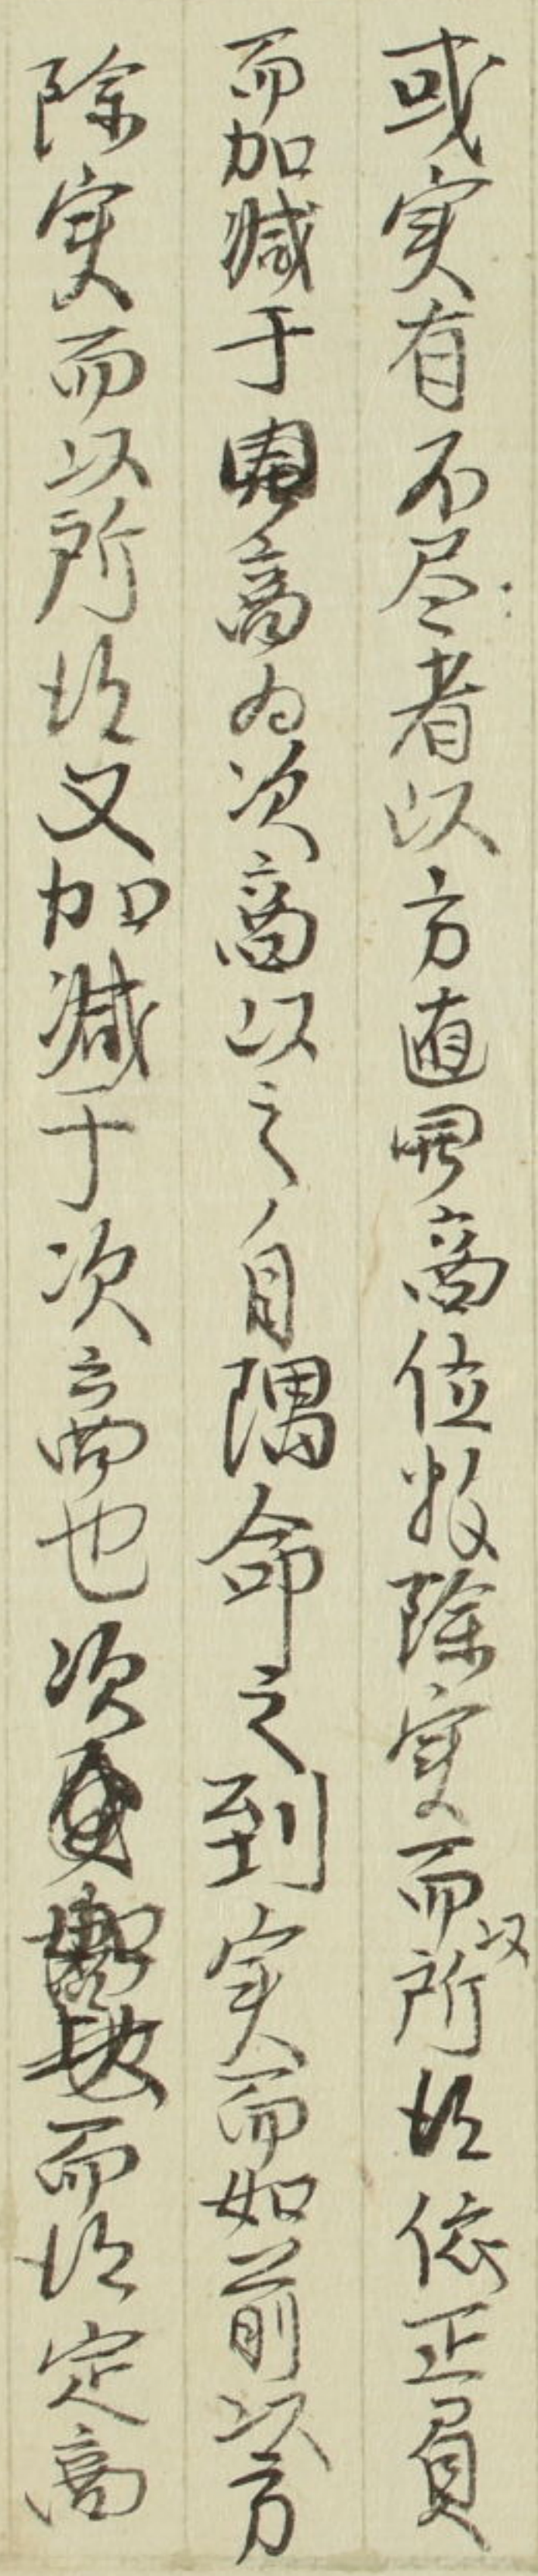 或実有不尽者以方直開商位数除実而以所得依正負
而加減于開商為次商以之自隅命之到実而如前以方
除実而以所得又加減于次商也次而得定商